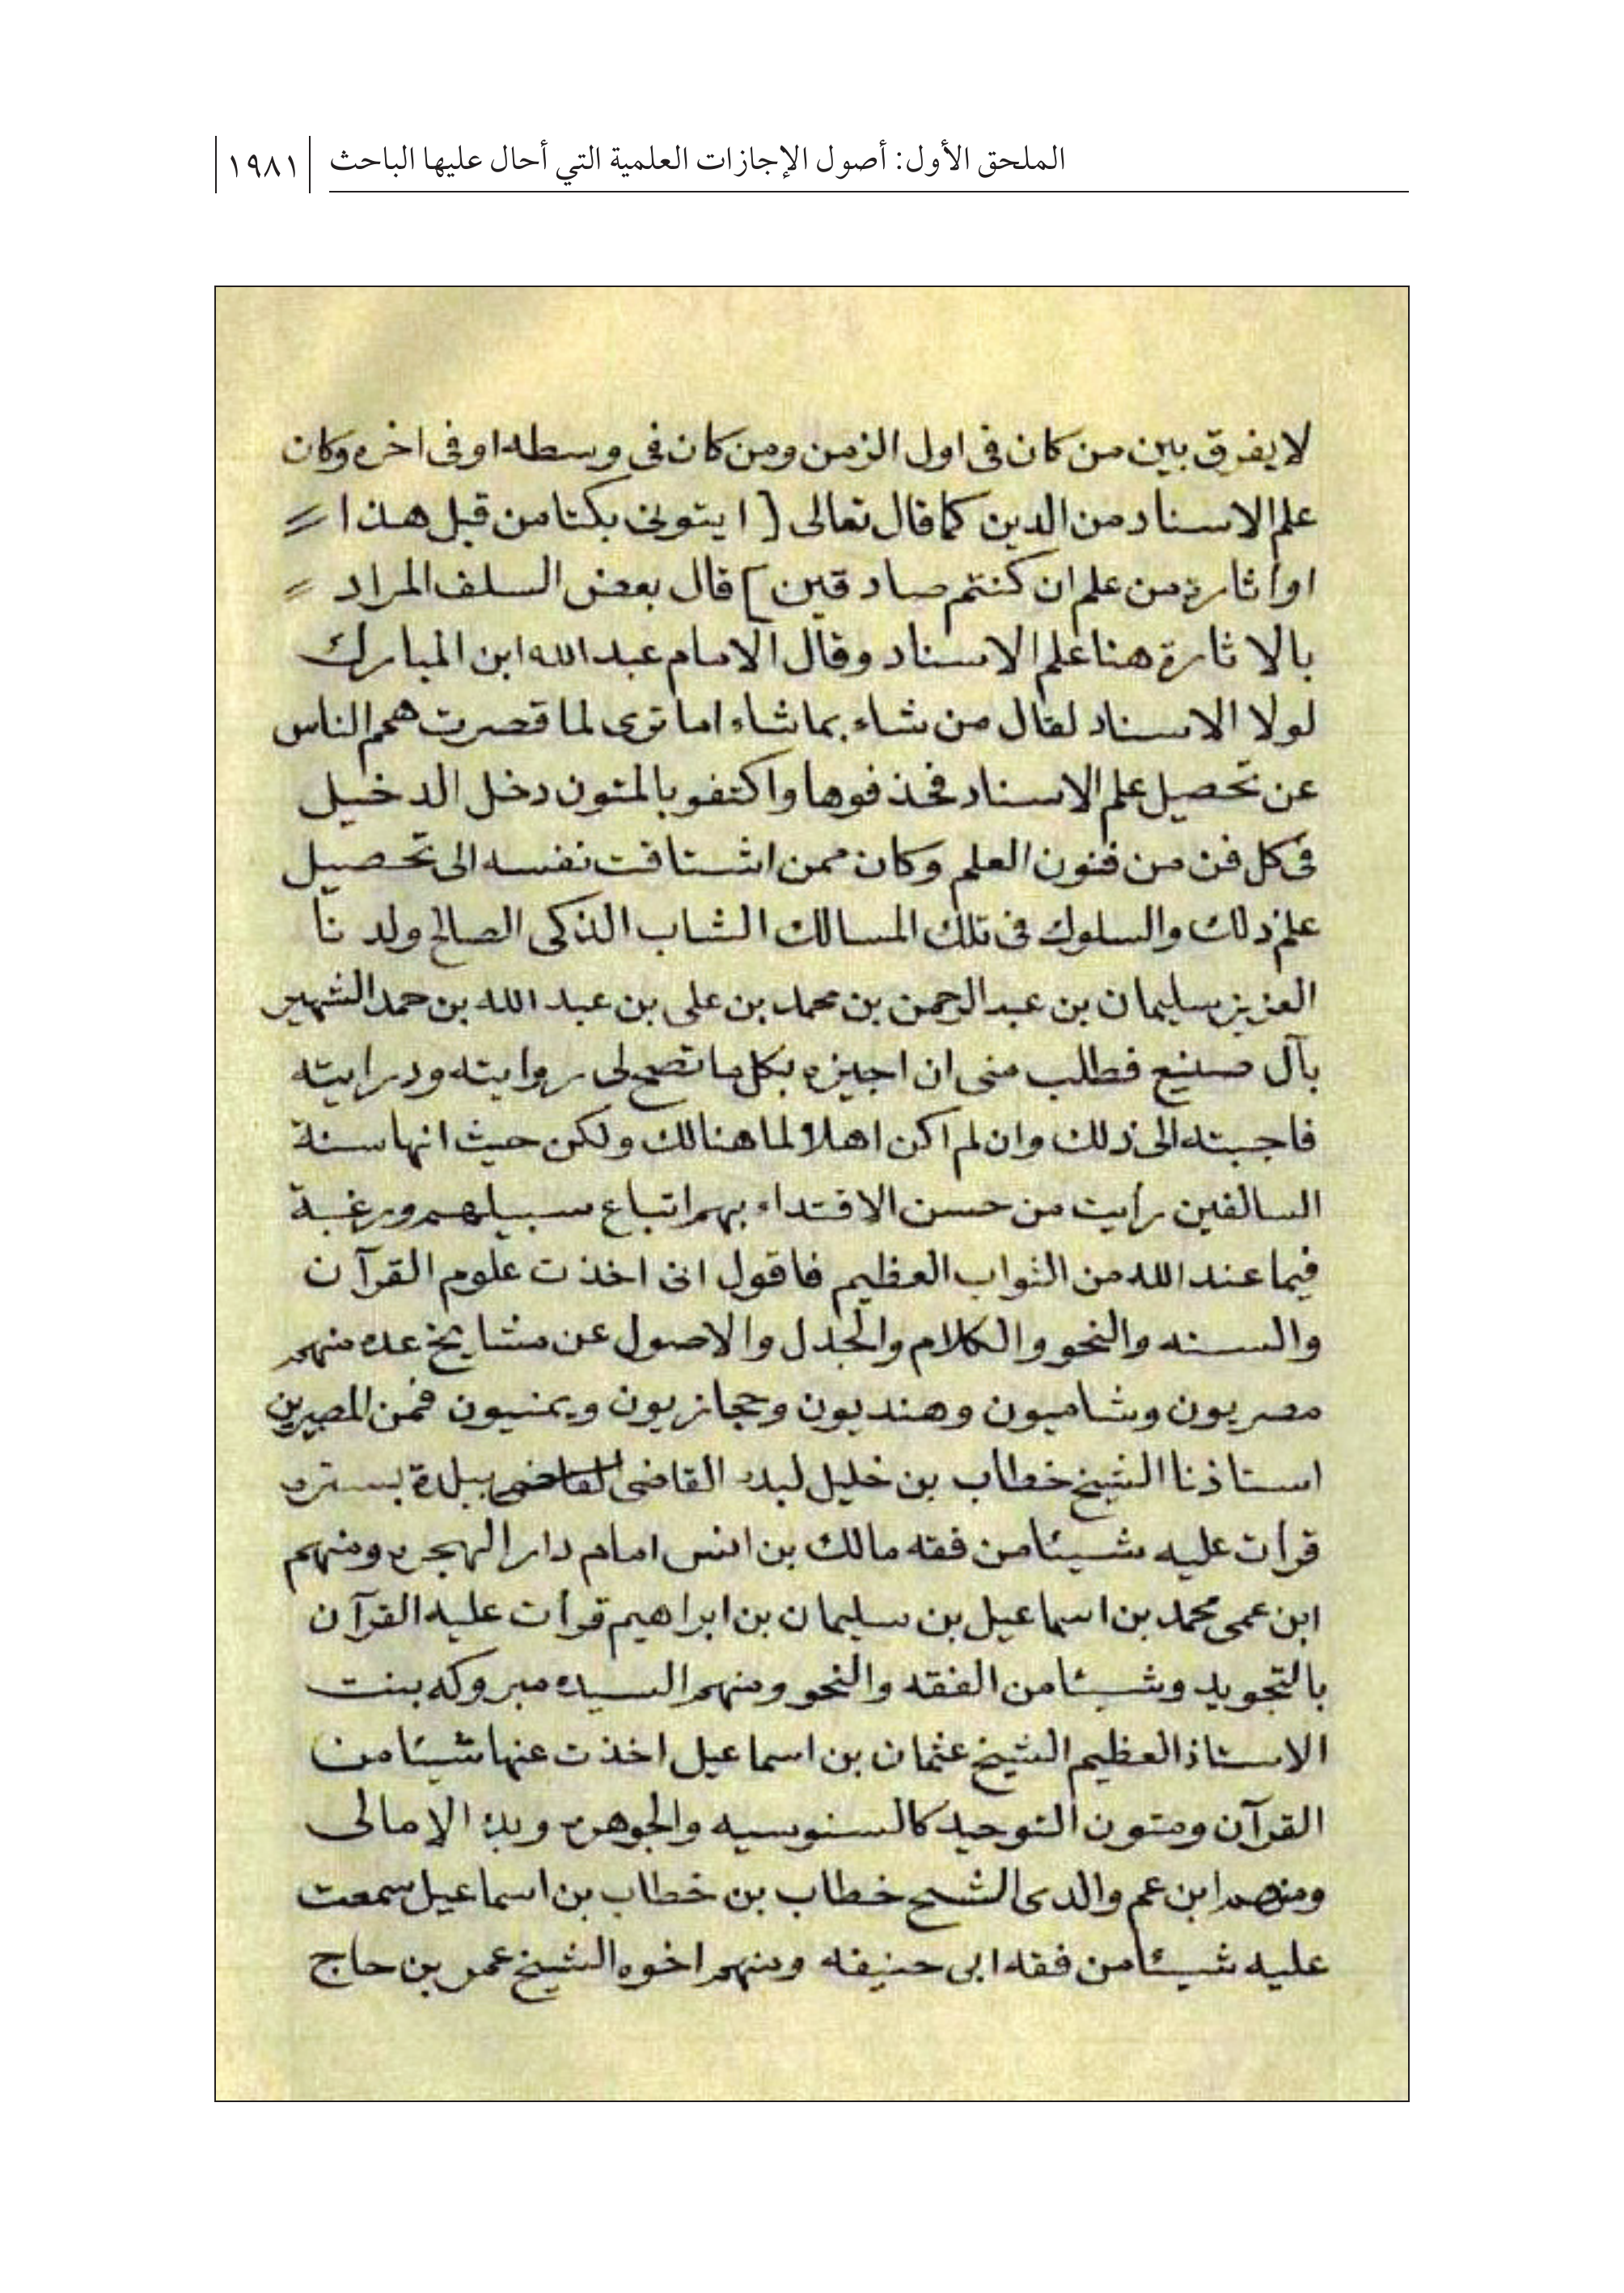 الملحق الأول: أصول الإجازات العلمية التي أحال عليها الباحث ١٩٨١
لا يفرق بين من كان فى اول الزمن ومن كان فى وسطه او فى اخره وكان
علم الاسناد من الدين كما قال تعالى [ ايتونى بكتا من قبل هذا
او اثارة من علم ان كنتم صادقين ] قال بعض السلف المراد
بالاثارة هنا علم الاسناد وقال الامام عبد الله ابن المبارك
لولا الاسناد لقال من شاء بما شاء اما ترى لما قصرت همم الناس
عن تحصيل علم الاسناد فحذفوها واكتفو بالمتون دخل الدخيل
فى كل فن من فنون العلم وكان ممن اشتاقت نفسه الى تحصيل
علم ذلك والسلوك فى تلك المسالك الشاب الذكى الصالح ولدنا
العزيز سليمان بن عبد الرحمن بن محمد بن على بن عبد الله بن حمد الشهير
بآل صنيع فطلب منى ان اجيزه بكل ما تصح لى روايته ودرايته
فاجبته الى ذلك وان لم اكن اهلا لما هنالك ولكن حيث انها سنة
السالفين رأيت من حسن الاقتداء بهم اتباع سبيلهم ورغبة
فيما عند الله من الثواب العظيم فاقول انى اخذت علوم القرآن
والسنه والنحو والكلام والجدل والاصول عن مشايخ عده منهم
مصريون وشاميون وهنديون وحجازيون ويمنيون فمن المصريين
استاذنا الشيخ خطاب بن خليل لبده القاضى ببلدة بستره
قرأت عليه شيئا من فقه مالك بن انس امام دار الهجره ومنهم
ابن عمى محمد بن اسماعيل بن سليمان بن ابراهيم قرأت عليه القرآن
بالتجويد وشيئا من الفقه والنحو ومنهم السيده مبروكه بنت
الاستاذ العظيم الشيخ عثمان بن اسماعيل اخذت عنها شيئا من
القرآن ومتون التوحيد كالسنوسيه والجوهره وبدء الامالى
ومنهم ابن عم والدى الشيخ خطاب بن خطاب بن اسماعيل سمعت
عليه شيئا من فقه ابى حنيفه ومنهم اخوه الشيخ عمر بن حاج